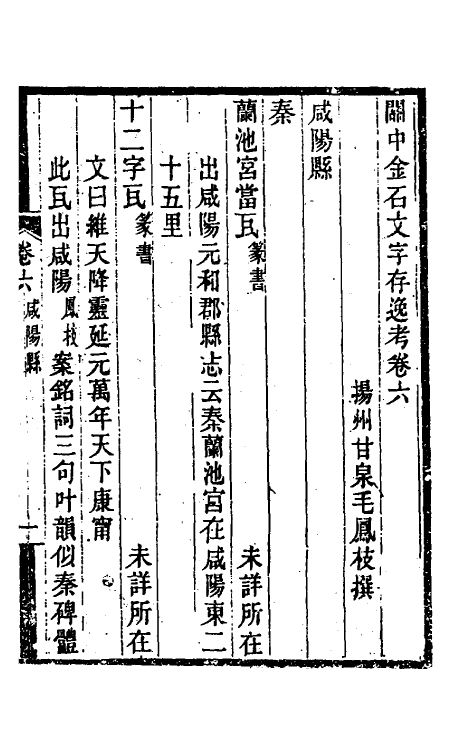 關中金石文字存逸考卷六
揚州甘泉毛鳳枝撰
咸陽縣
秦
蘭池宮當瓦篆書 未詳所在
出咸陽元和郡縣志云秦蘭池宮在咸陽東二
十五里
十二字瓦篆書 未詳所在
文曰維天降靈延元萬年天下康甯
此瓦出咸陽鳳枝案銘詞三句叶韻似秦碑體
卷六 咸陽縣 一